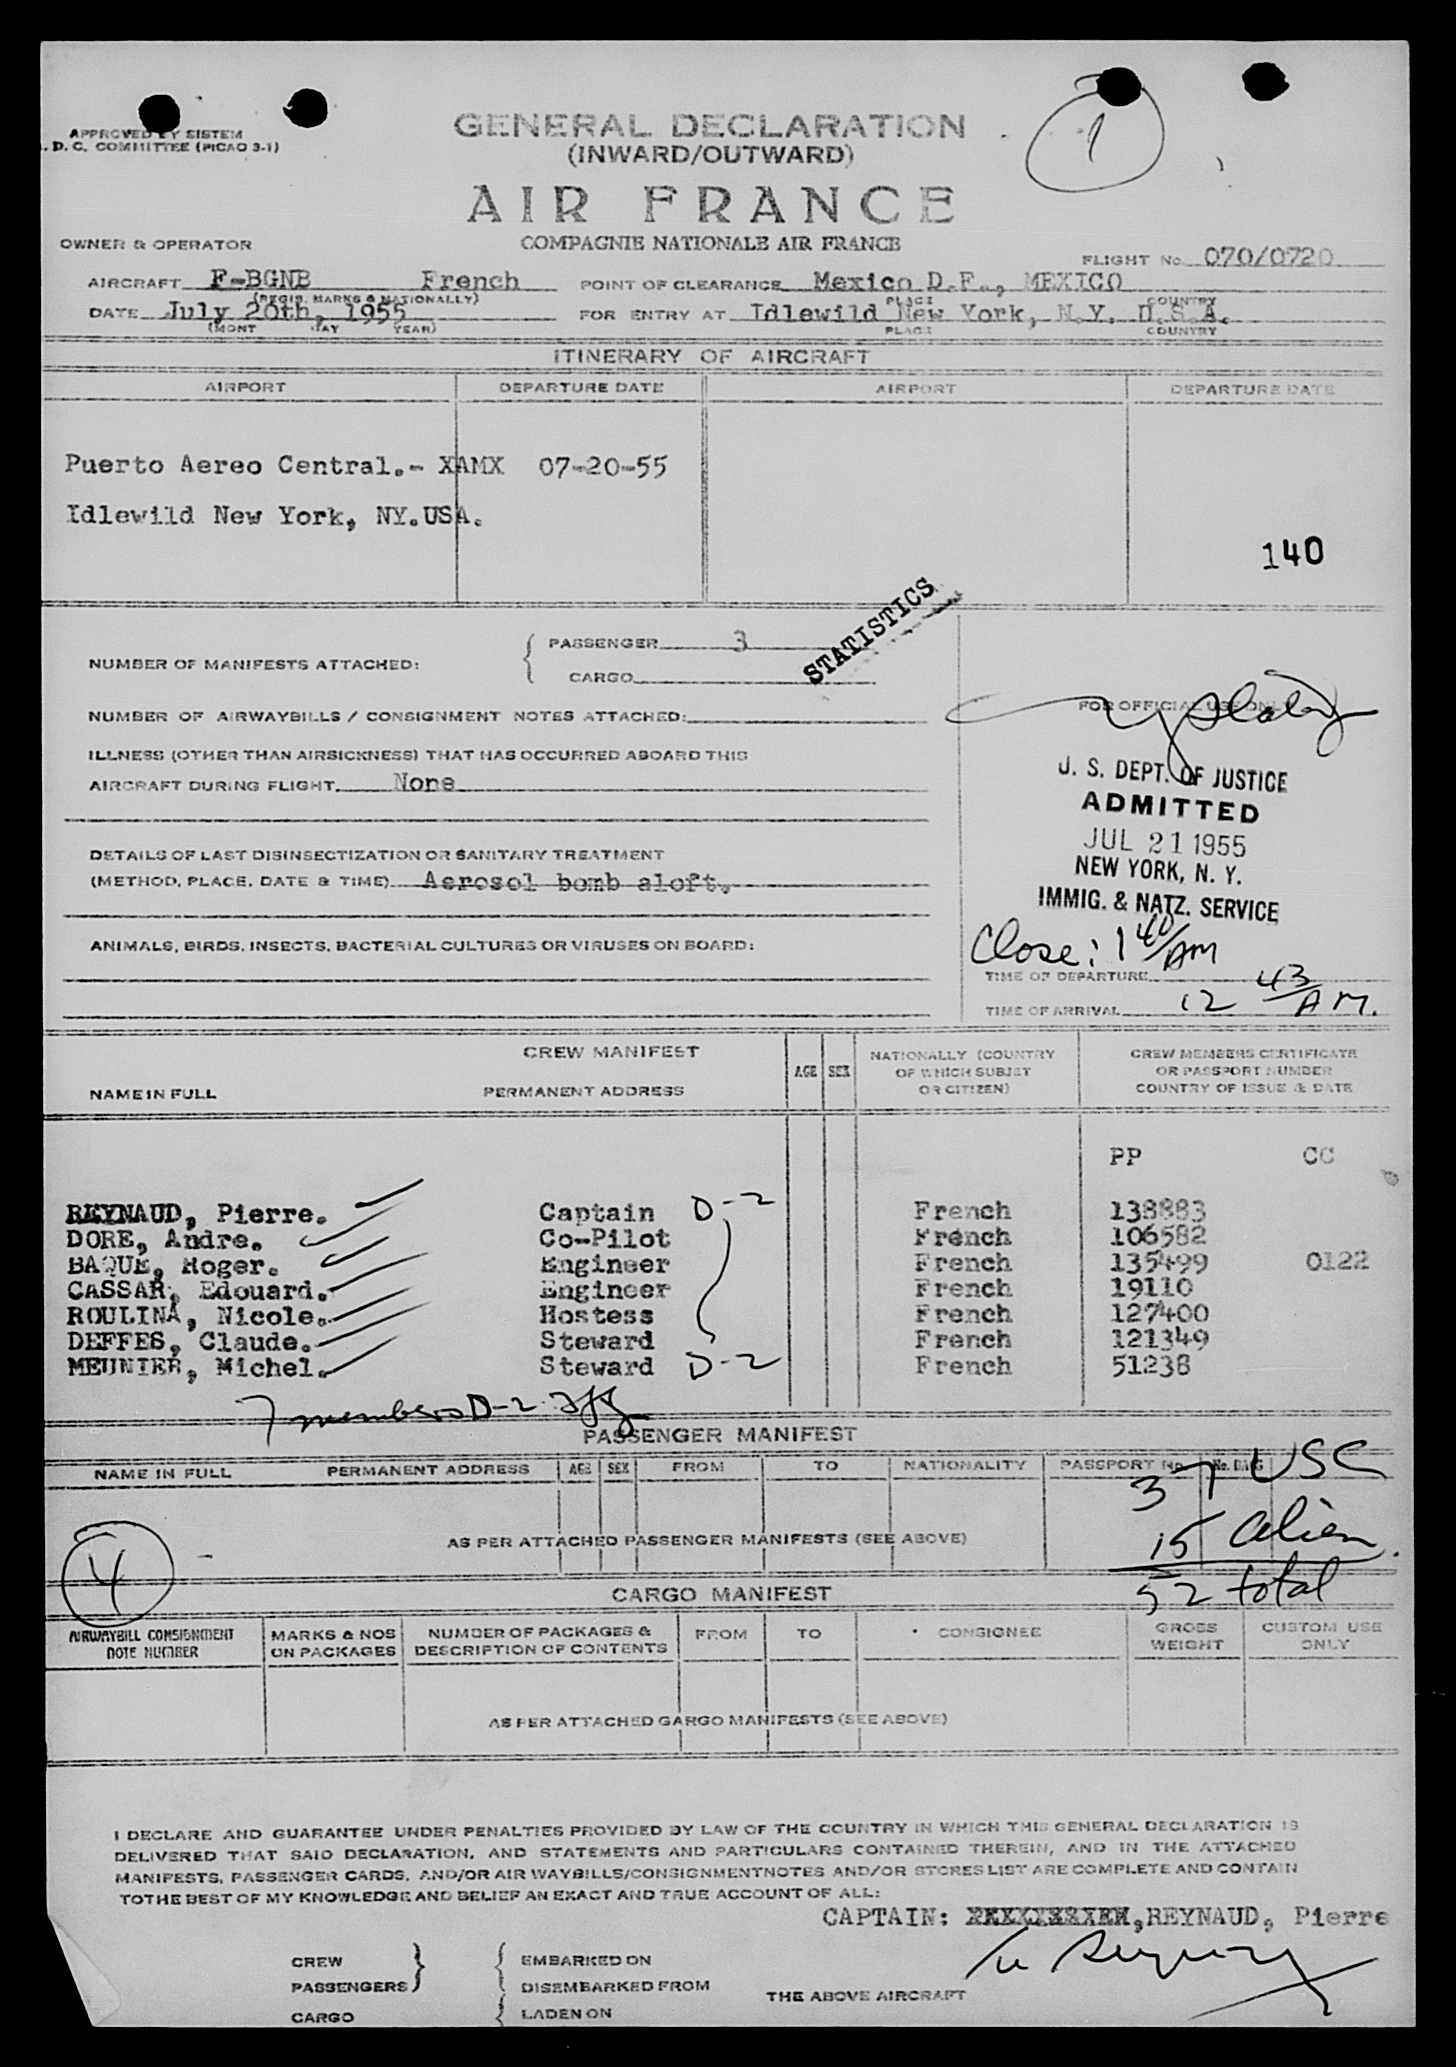 1
APPROVED BY SISTEM
. D. C. COMMITTEE (PICAO 3-1)
GENERAL DECLARATION
(INWARD/OUTWARD)
AIR FRANCE
OWNER & OPERATOR
COMPAGNIE NATIONALE AIR FRANCE
FLIGHT No. 070/0720
AIRCRAFT F-BGNB French POINT OF CLEARANCE Mexico D.F., MEXICO
(REGIS. MARKS & NATIONALLY) PLACE COUNTRY
DATE July 20th, 1955 FOR ENTRY AT Idlewild New York, N.Y. U.S.A.
(MONT DAY YEAR) PLACE COUNTRY
ITINERARY OF AIRCRAFT
AIRPORT DEPARTURE DATE AIRPORT DEPARTURE DATE
Puerto Aereo Central.- XAMX 07-20-55
Idlewild New York, NY.USA.
140
STATISTICS
NUMBER OF MANIFESTS ATTACHED:
PASSENGER 3
CARGO
NUMBER OF AIRWAYBILLS / CONSIGNMENT NOTES ATTACHED:
FOR OFFICIAL USE ONLY
ILLNESS (OTHER THAN AIRSICKNESS) THAT HAS OCCURRED ABOARD THIS
AIRCRAFT DURING FLIGHT. None
U. S. DEPT. OF JUSTICE
ADMITTED
JUL 21 1955
NEW YORK, N. Y.
IMMIG. & NATZ. SERVICE
DETAILS OF LAST DISINSECTIZATION OR SANITARY TREATMENT
(METHOD, PLACE, DATE & TIME) Aerosol bomb aloft.
ANIMALS, BIRDS, INSECTS, BACTERIAL CULTURES OR VIRUSES ON BOARD:
Close: 1 40/AM
TIME OF DEPARTURE
TIME OF ARRIVAL 12 43/AM.
CREW MANIFEST
NAME IN FULL PERMANENT ADDRESS AGE SEX
NATIONALLY (COUNTRY
OF WHICH SUBJET
OR CITIZEN)
CREW MEMBERS CERTIFICATE
OR PASSPORT NUMBER
COUNTRY OF ISSUE & DATE
PP CC
REYNAUD, Pierre. Captain D-2 French 138883
DORE, Andre. Co-Pilot French 106582
BAQUE, Roger. Engineer French 135499 0122
CASSAR, Edouard. Engineer French 19110
ROULINA, Nicole. Hostess French 127400
DEFFES, Claude. Steward French 121349
MEUNIER, Michel. Steward D-2 French 51238
7 members D-2
PASSENGER MANIFEST
NAME IN FULL PERMANENT ADDRESS AGE SEX FROM TO NATIONALITY PASSPORT No. No. BAG
37 USC
AS PER ATTACHED PASSENGER MANIFESTS (SEE ABOVE)
15 alien
52 total
4
CARGO MANIFEST
AIRWAYBILL CONSIGNMENT
NOTE NUMBER
MARKS & NOS
ON PACKAGES
NUMBER OF PACKAGES &
DESCRIPTION OF CONTENTS
FROM TO CONSIGNEE
GROSS
WEIGHT
CUSTOM USE
ONLY
AS PER ATTACHED GARGO MANIFESTS (SEE ABOVE)
I DECLARE AND GUARANTEE UNDER PENALTIES PROVIDED BY LAW OF THE COUNTRY IN WHICH THIS GENERAL DECLARATION IS
DELIVERED THAT SAID DECLARATION, AND STATEMENTS AND PARTICULARS CONTAINED THEREIN, AND IN THE ATTACHED
MANIFESTS, PASSENGER CARDS, AND/OR AIR WAYBILLS/CONSIGNMENTNOTES AND/OR STORES LIST ARE COMPLETE AND CONTAIN
TOTHE BEST OF MY KNOWLEDGE AND BELIEF AN EXACT AND TRUE ACCOUNT OF ALL:
CAPTAIN: REYNAUD, Pierre
CREW
PASSENGERS
CARGO
EMBARKED ON
DISEMBARKED FROM
LADEN ON
THE ABOVE AIRCRAFT